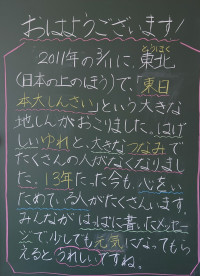 おはようございます!
2011年の3/11に、東北
とうほく
(日本の上のほう)で、「東日
本大しんさい」という大きな
地しんがおこりました。はげ
しいゆれと、大きなつなみで
たくさんの人がなくなりまし
た。13年たった今も、心を、い
ためている人がたくさんいます。
みんながはっぱに書いたメッセー
ジで、少しでも元気になっても
らえるとうれしいですね。